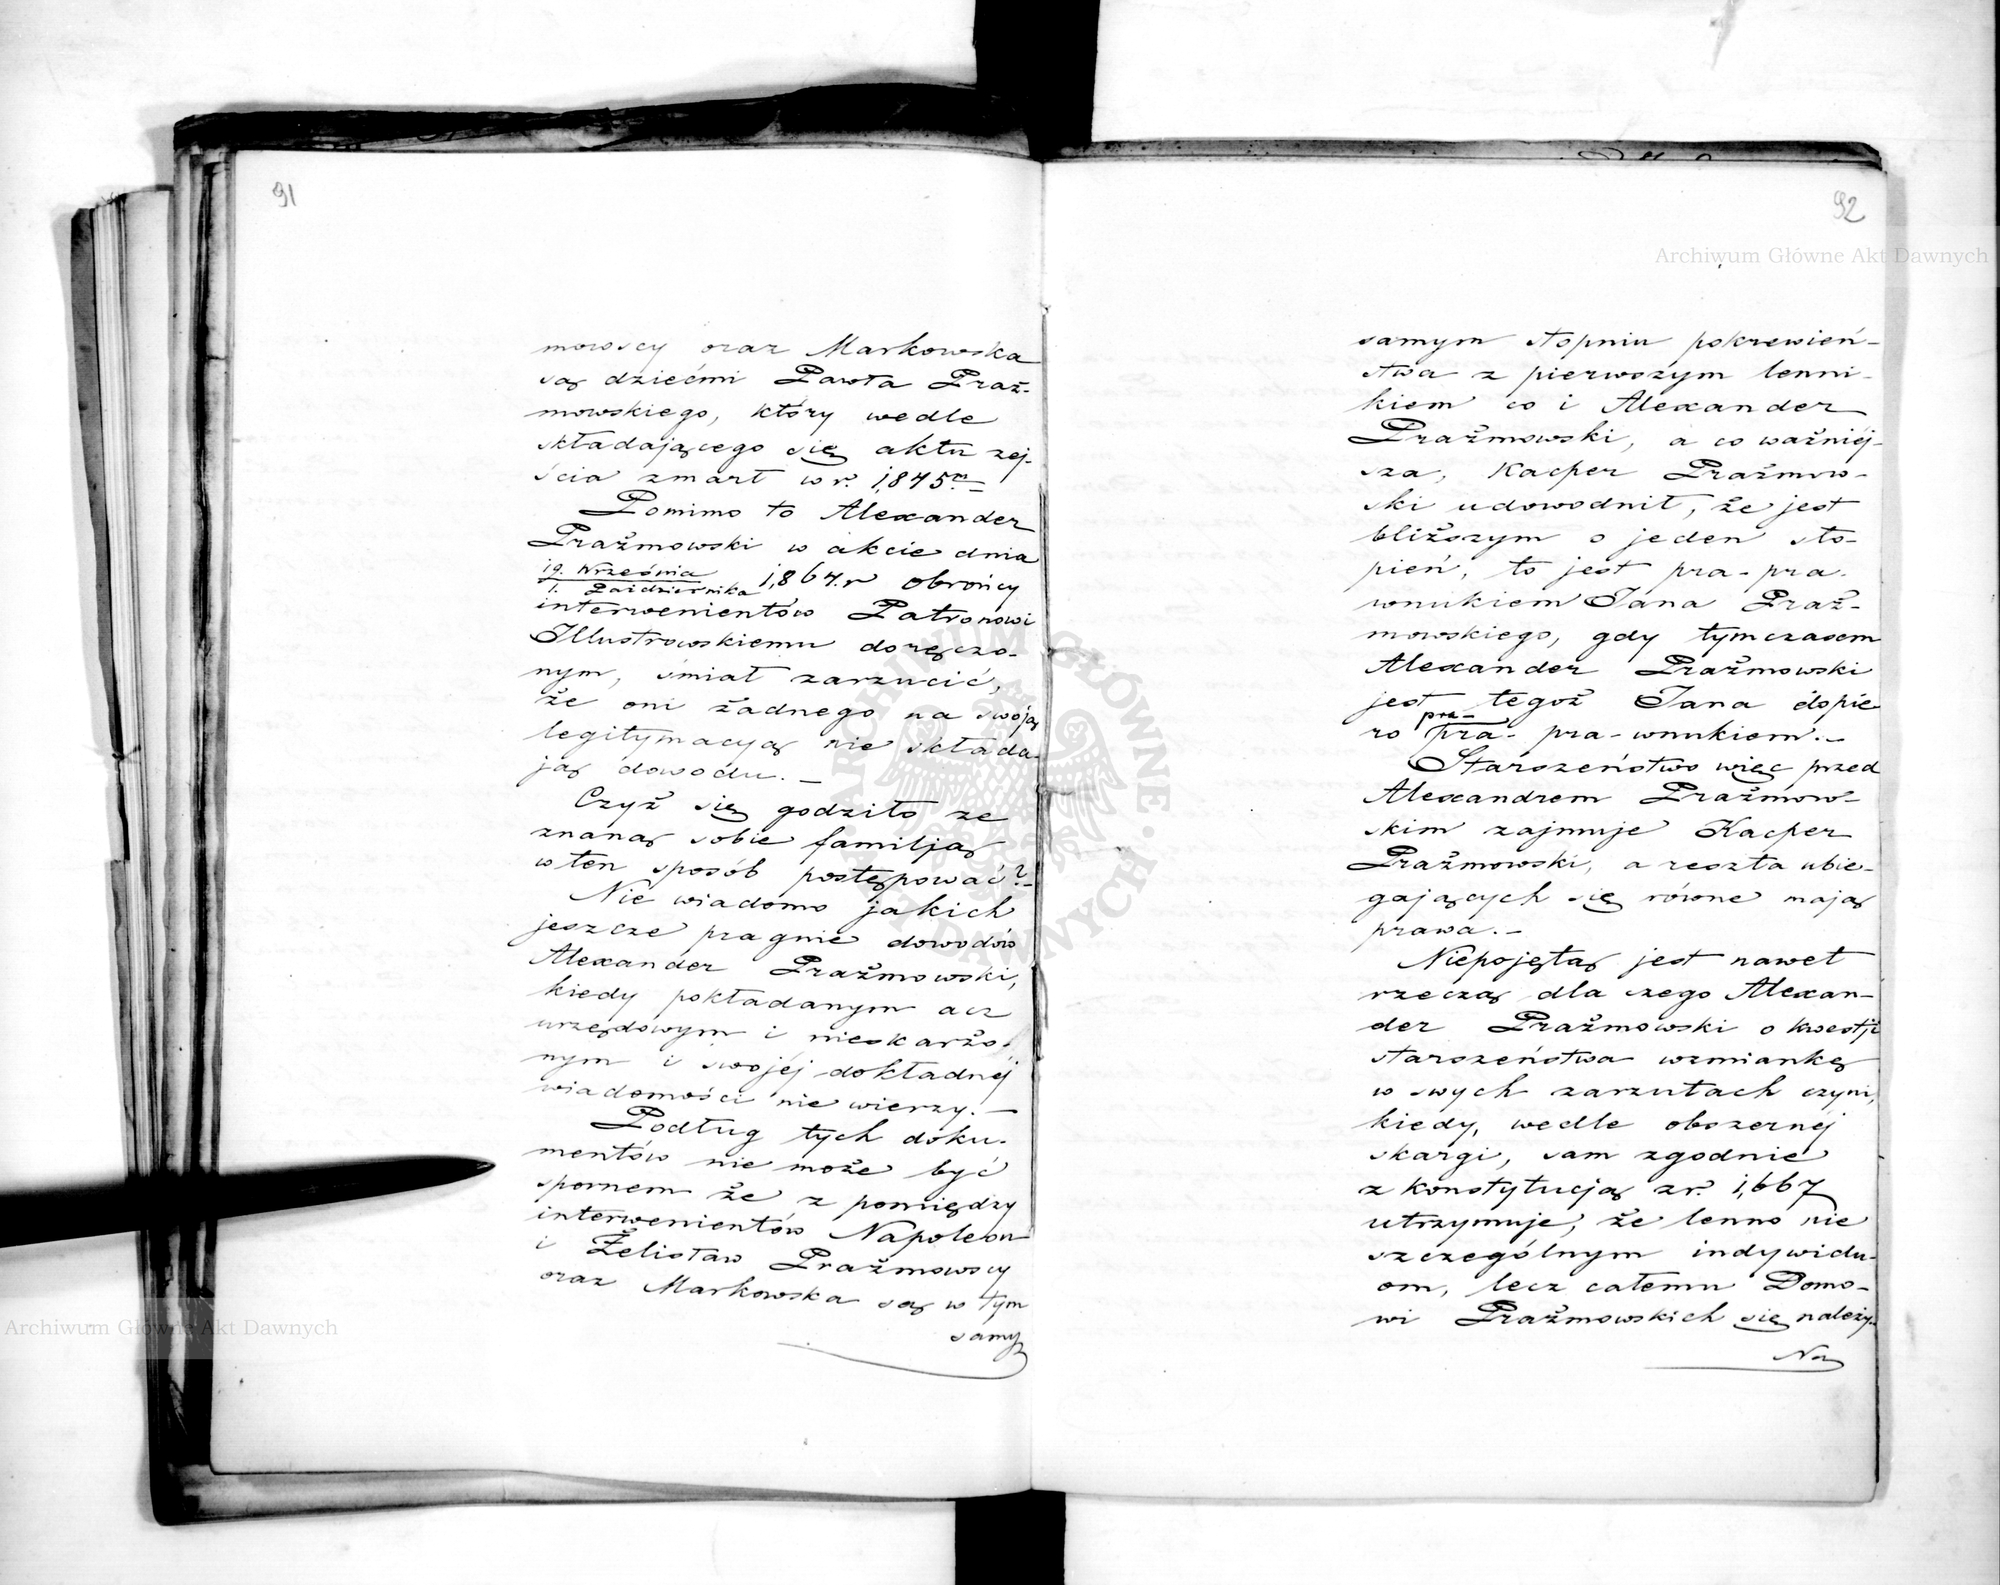 91
mowscy oraz Markowska
są dziećmi Pawła Praż-
mowskiego, który wedle
składającego się aktu zej-
ścia zmarł w r. 1,845 m.
Pomimo to Alexander
Prażmowski w akcie dnia
19. Września
1. Października 1,864. r obrońcy
interwenientów Patronowi
Illustrowskiemu doręczo-
nym, śmiał zarzucić,
że oni żadnego na swoją
legitymacyą nie składa-
ją dowodu. —
Czyż się godziło ze
znaną sobie familją
w ten sposób postępować? —
Nie wiadomo jakich
jeszcze pragnie dowodów
Alexander Prażmowski,
kiedy pokładanym acz
urzędowym i nieskarżo-
nym i swojéj dokładnéj
wiadomości nie wierzy. —
Podług tych doku-
mentów nie może być
spornem że z pomiędzy
interwenientów Napoleon
i Żelisław Prażmowscy
oraz Markowska są w tym
samy
92
samym stopniu pokrewień-
stwa z pierwszym lenni-
kiem co i Alexander
Prażmowski, a co ważniéj-
sza, Kacper Prażmow-
ski udowodnił, że jest
bliższym o jeden sto-
pień, to jest pra-pra-
wnukiem Jana Praż-
mowskiego, gdy tymczasem
Alexander Prażmowski
jest tegoż Jana dopie
pra-
ro pra- pra-wnukiem. —
Starszeństwo więc przed
Alexandrem Prażmow-
skim zajmuje Kacper
Prażmowski, a reszta ubie-
gających się równe mają
prawa. —
Niepojętą jest nawet
rzeczą dla czego Alexan-
der Prażmowski o kwestji
starszeństwa wzmiankę
w swych zarzutach czyni,
kiedy, wedle obszernéj
skargi, sam zgodnie
z konstytucją z r. 1,667
utrzymuje, że lenno nie
szczególnym indywidu-
om, lecz całemu Domo-
wi Prażmowskich się należy.
Na
Archiwum Główne Akt Dawnych
Archiwum Główne Akt Dawnych
ARCHIWUM GŁÓWNE AKT DAWNYCH